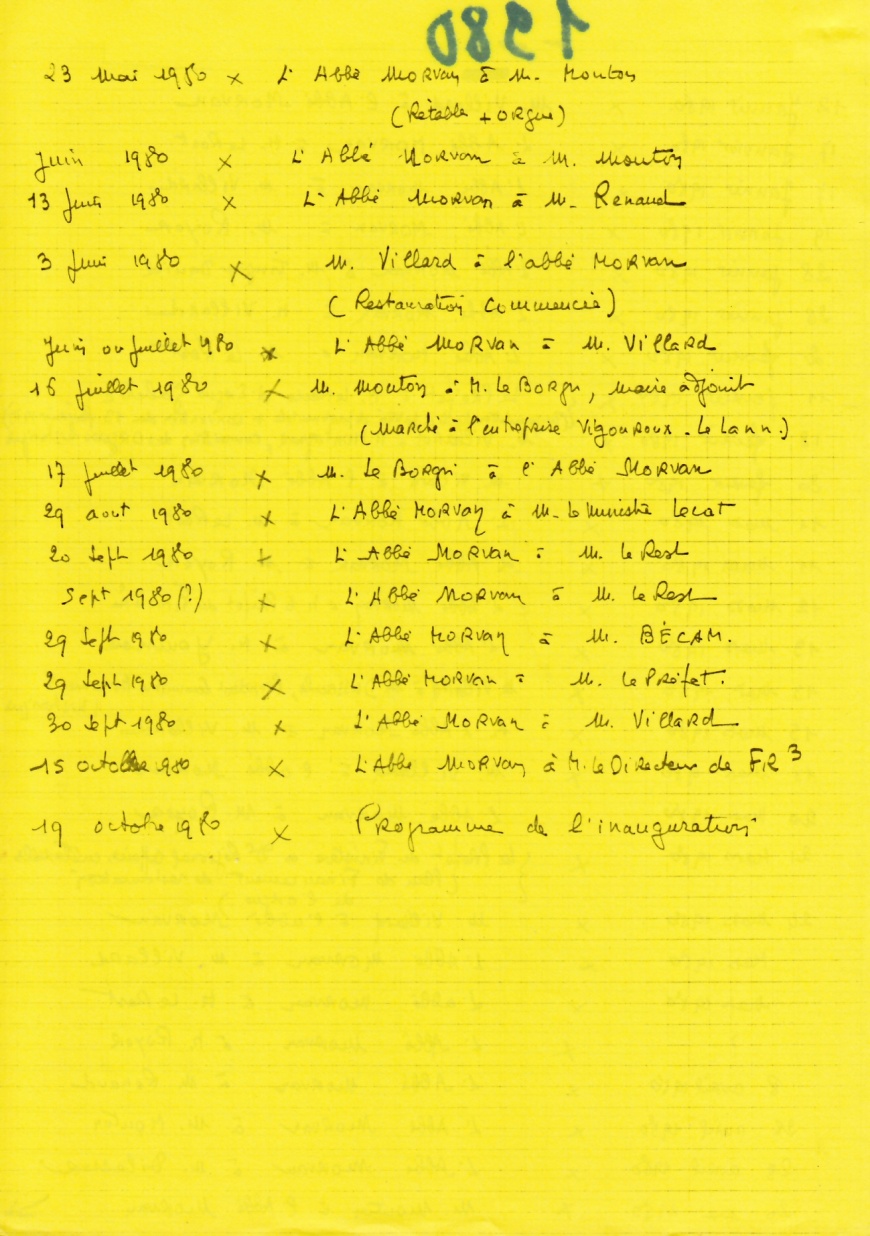 1980
23 Mai 1980 x L'Abbé MORVAN à M. Mouton
(Rétable + ORgue)
Juin 1980 x L'Abbé MORVAN à M. Mouton
13 Juin 1980 x L'Abbé MORVAN à M. Renaud
3 Juin 1980 x M. Villard à l'abbé MORVAN
(Restauration commencée)
Juin ou Juillet 1980 x L'Abbé MORVAN à M. Villard
16 Juillet 1980 x M. Mouton à M. Le Borgn, maire adjoint
(Marché à l'entreprise Vigouroux - Le Lann.)
17 Juillet 1980 x M. Le Borgn à l'Abbé MORVAN
29 aout 1980 x L'Abbé MORVAN à M. le Ministre Lecat
20 Sept 1980 x L'Abbé MORVAN à M. le Rest
Sept 1980 (?) x L'Abbé MORVAN à M. le Rest
29 Sept 1980 x L'Abbé MORVAN à M. BÉCAM.
29 Sept 1980 x L'Abbé MORVAN à M. le Préfet.
30 Sept 1980 x L'Abbé MORVAN à M. Villard
15 octobre 1980 x L'Abbé MORVAN à M. le Directeur de FR3
19 octobre 1980 x Programme de l'inauguration